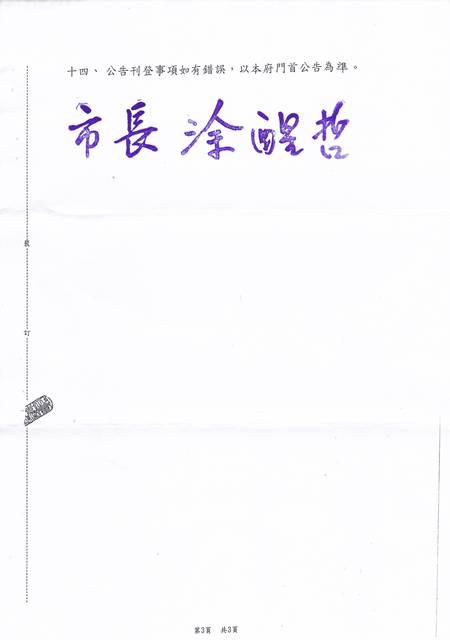 十四、公告刊登事項如有錯誤，以本府門首公告為準。
市長 涂醒哲
裝
訂
第3頁 共3頁